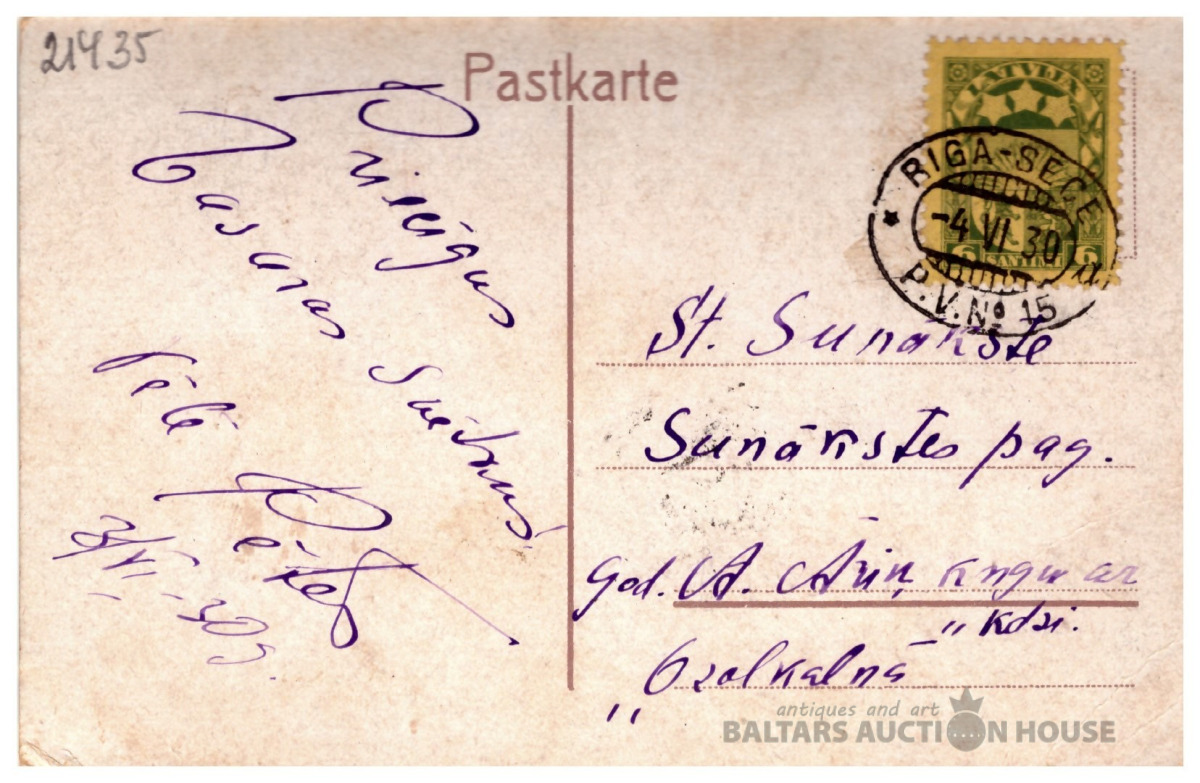 21435
Pastkarte
Priecīgus
Vasaras svētkus!
vēlē
Pēter
3/VI - 30 g.
LATVIJA
6 SANTIMI 6
RIGA-SECE
-4 VI 30
P.V.№ 15
St. Sunākste
Sunākstes pag.
God. A. Āriņ kngu ar
kdzi.
"Ozolkalnā"
antiques and art
BALTARS AUCTION HOUSE